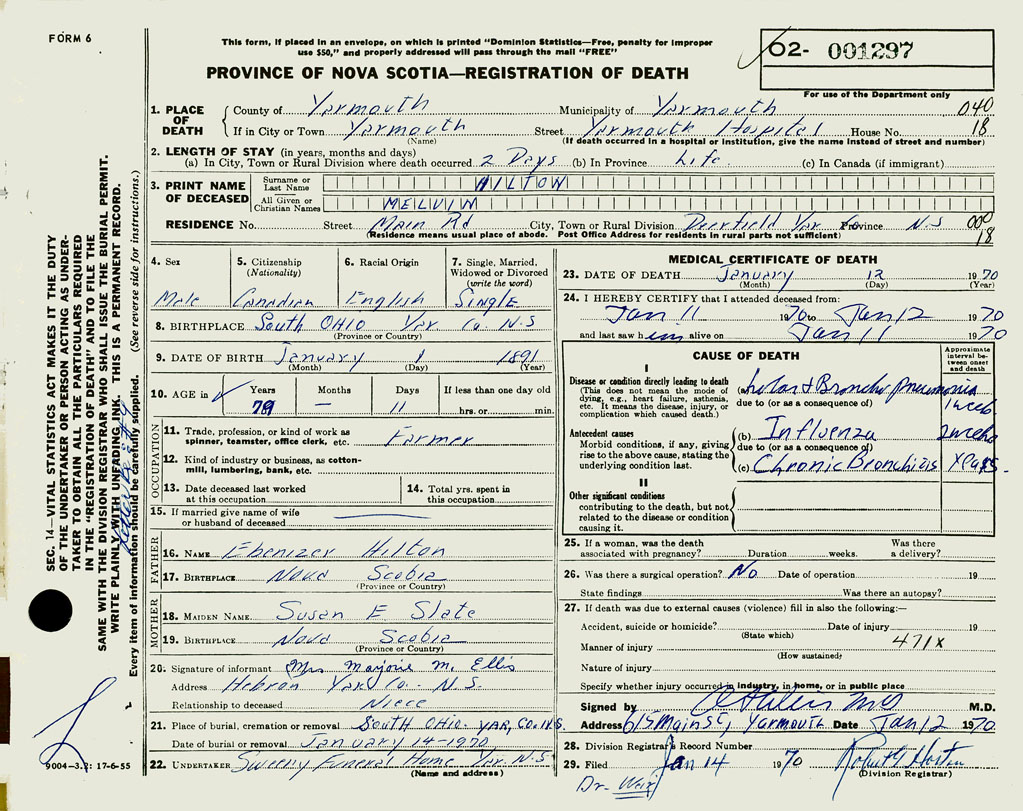 FORM 6
This form, if placed in an envelope, on which is printed "Dominion Statistics—Free, penalty for improper
use $50," and properly addressed will pass through the mail "FREE"
O2- 001297
PROVINCE OF NOVA SCOTIA—REGISTRATION OF DEATH
For use of the Department only
1. PLACE OF DEATH County of Yarmouth Municipality of Yarmouth 040
If in City or Town Yarmouth Street Yarmouth Hospital House No. 18
(Name) (If death occurred in a hospital or institution, give the name instead of street and number)
2. LENGTH OF STAY (in years, months and days)
(a) In City, Town or Rural Division where death occurred 2 Days (b) In Province Life (c) In Canada (if immigrant)
3. PRINT NAME OF DECEASED Surname or Last Name HILTON
All Given or Christian Names MELVIN
RESIDENCE No. Street Main Rd City, Town or Rural Division Deerfield Yar Co Province N.S 000
(Residence means usual place of abode. Post Office Address for residents in rural parts not sufficient) 18
4. Sex 5. Citizenship (Nationality) 6. Racial Origin 7. Single, Married, Widowed or Divorced (write the word)
Male Canadian English Single
8. BIRTHPLACE South OHIO Yar. Co. N.S
(Province or Country)
9. DATE OF BIRTH January 1 1891
(Month) (Day) (Year)
10. AGE in Years Months Days If less than one day old
79 — 11 hrs. or min.
OCCUPATION
11. Trade, profession, or kind of work as
spinner, teamster, office clerk, etc. Farmer
12. Kind of industry or business, as cotton-
mill, lumbering, bank, etc.
13. Date deceased last worked at this occupation 14. Total yrs. spent in this occupation
15. If married give name of wife
or husband of deceased
FATHER
16. NAME Ebenizer Hilton
17. BIRTHPLACE Nova Scobia
(Province or Country)
MOTHER
18. MAIDEN NAME Susan E Slate
19. BIRTHPLACE Nova Scobia
(Province or Country)
20. Signature of informant Mrs Marjorie M. Ellis
Address Hebron Yar. Co. N.S.
Relationship to deceased Niece
21. Place of burial, cremation or removal SOUTH OHIO. YAR, CO. N.S.
Date of burial or removal January 14-1970
22. UNDERTAKER Sweeny Funeral Home Yar. N.S
(Name and address)
MEDICAL CERTIFICATE OF DEATH
23. DATE OF DEATH January 12 1970
(Month) (Day) (Year)
24. I HEREBY CERTIFY that I attended deceased from:
Jan 11 1970 to Jan 12 1970
and last saw him alive on Jan 11 1970
CAUSE OF DEATH
Approximate interval between onset and death
I
Disease or condition directly leading to death
(This does not mean the mode of
dying, e.g., heart failure, asthenia,
etc. It means the disease, injury, or
complication which caused death.)
(a) Lobar + Broncho pneumonia 1 week
due to (or as a consequence of)
Antecedent causes
Morbid conditions, if any, giving
rise to the above cause, stating the
underlying condition last.
(b) Influenza 2 weeks
due to (or as a consequence of)
(c) Chronic Bronchitis years.
II
Other significant conditions
contributing to the death, but not
related to the disease or condition
causing it.
25. If a woman, was the death Was there
associated with pregnancy? Duration weeks. a delivery?
26. Was there a surgical operation? No Date of operation 19
State findings Was there an autopsy?
27. If death was due to external causes (violence) fill in also the following:—
Accident, suicide or homicide? Date of injury 19
(State which)
Manner of injury 471X
(How sustained)
Nature of injury
Specify whether injury occurred in industry, in home, or in public place
Signed by M.D.
Address 615 Main St, Yarmouth Date Jan 12 1970
28. Division Registrar's Record Number
29. Filed Jan 14 1970
(Division Registrar)
Dr. Weir
SEC. 14—VITAL STATISTICS ACT MAKES IT THE DUTY
OF THE UNDERTAKER OR PERSON ACTING AS UNDER-
TAKER TO OBTAIN ALL THE PARTICULARS REQUIRED
IN THE "REGISTRATION OF DEATH" AND TO FILE THE
SAME WITH THE DIVISION REGISTRAR WHO SHALL ISSUE THE BURIAL PERMIT.
WRITE PLAINLY WITH UNFADING INK. THIS IS A PERMANENT RECORD.
Every item of information should be carefully supplied. (See reverse side for instructions.)
9004—3.2: 17-6-55